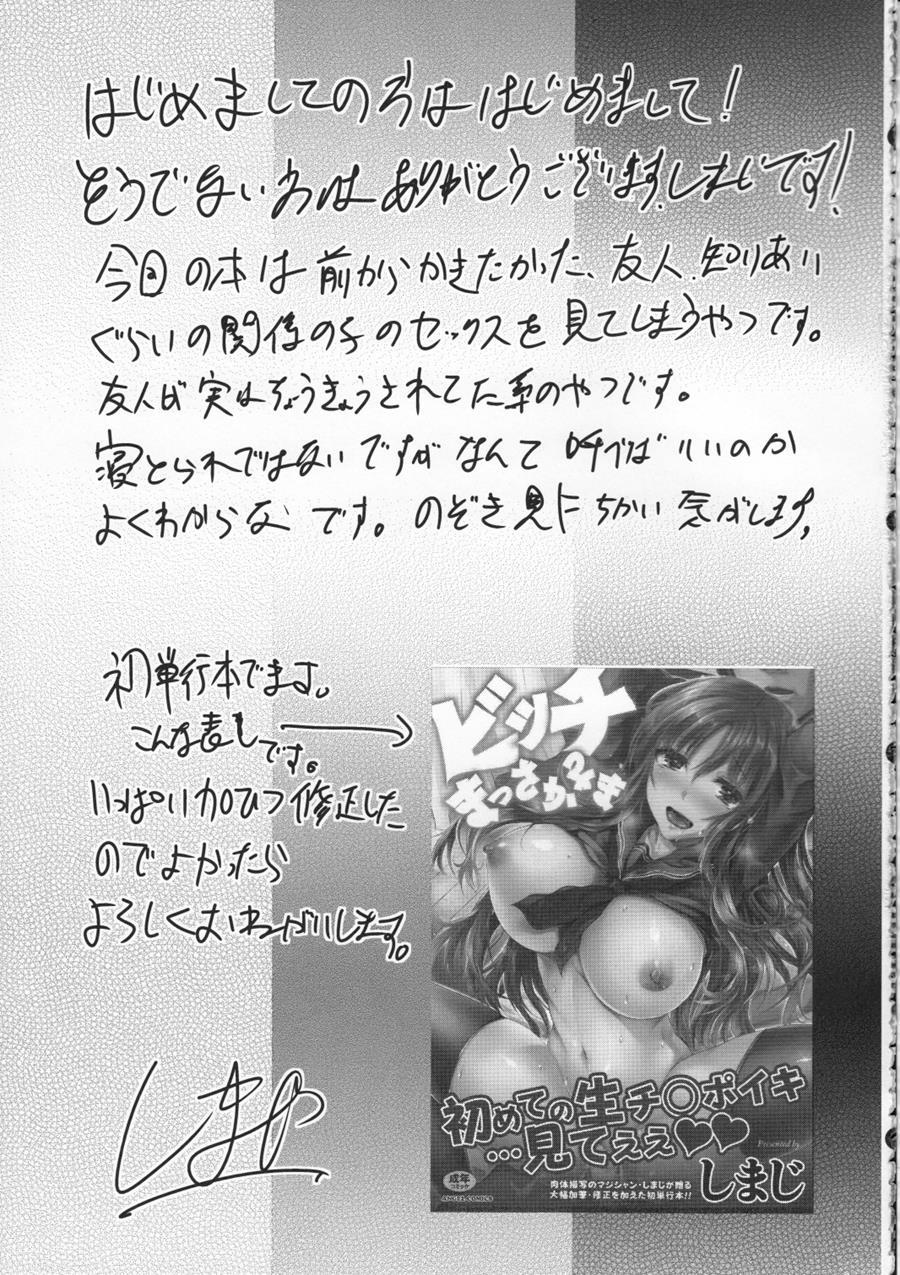 はじめましての方ははじめまして!
そうでない方はありがとうございます。しまじです!
今回の本は前からかきたかった、友人、知りあい
ぐらいの関係の子のセックスを見てしまうやつです。
友人が実はちょうきょうされてた系のやつです。
寝とられではないですがなんて呼べばいいのか
よくわからないです。のぞき見にちかい気がします。
初単行本でます。
こんな表しです。
いっぱい加ひつ修正した
のでよかったら
よろしくおねがいします。
しまじ
ビッチ
まっさかさま
初めての生チ○ポイキ
…見てぇぇ♥♥
Presented by
しまじ
成年
コミック
ANGEL COMICS
肉体描写のマジシャン・しまじが贈る
大幅加筆・修正を加えた初単行本!!